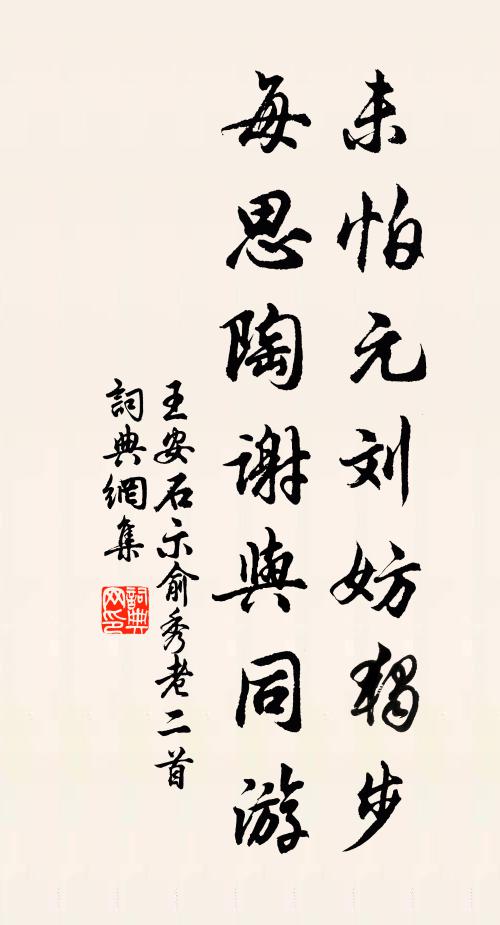 未怕元刘妨獨步
每思陶謝與同游
王安石示俞秀老二首
詞典網集
詞典
网印